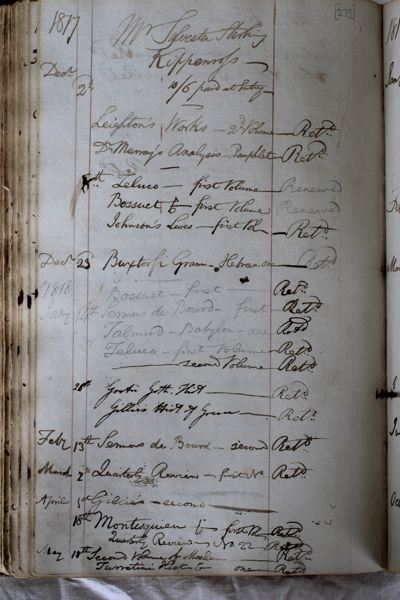 [279]
1817 Mr Silvester Sterling
Kippenross
Decr 2d 10/6 paid at entry
Leighton's Works — 2d Volume — Retd
Dr Murray's Analysis — Pamphlet — Retd
8th Zeluco — first Volume — Renewed
Bossuet — first Volume Renewed
Johnson's Lives — first Vol — Retd
Decr 23 Buxtorfi Gramm. Hebrew one — Retd
Bossuet — first — Retd
1818
Jany 14th Sermons de Bourd — first — Retd
Talmud — Babylon — one Retd
Zeluco — first Volume — Retd
— second Volume — Retd
28th Grotii Goth. Hist — Retd
Gillies Hist of Greece — Retd
Feby 13th Sermons de Bourd — second Retd
March 2d Quarterly Review — first No. Retd
April 1st Gillies — second
18th Montesquieu — first Vol Retd
Quarterly Review — No. 22 — Retd
May 18th Second Volume of Mosheim Retd
Turretini — one — Retd